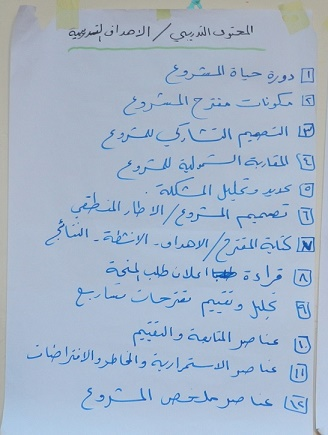 المحتوى التدريبي / الأهداف التدريبية
١ دورة حياة المشروع
٢ مكونات مقترح المشروع
٣ التصميم التشاركي للمشروع
٤ المقاربة الشمولية للمشروع
٥ تحديد وتحليل المشكلة.
٦ تصميم المشروع / الاطار المنطقي
٧ كتابة المقترح / الاهداف - الانشطة - النتائج
٨ قراءة اعلان طلب المنحة
٩ تحليل وتقييم مقترحات مشاريع
١٠ عناصر المتابعة والتقييم
١١ عناصر الاستمرارية والمخاطر والافتراضات
١٢ عناصر ملخص المشروع